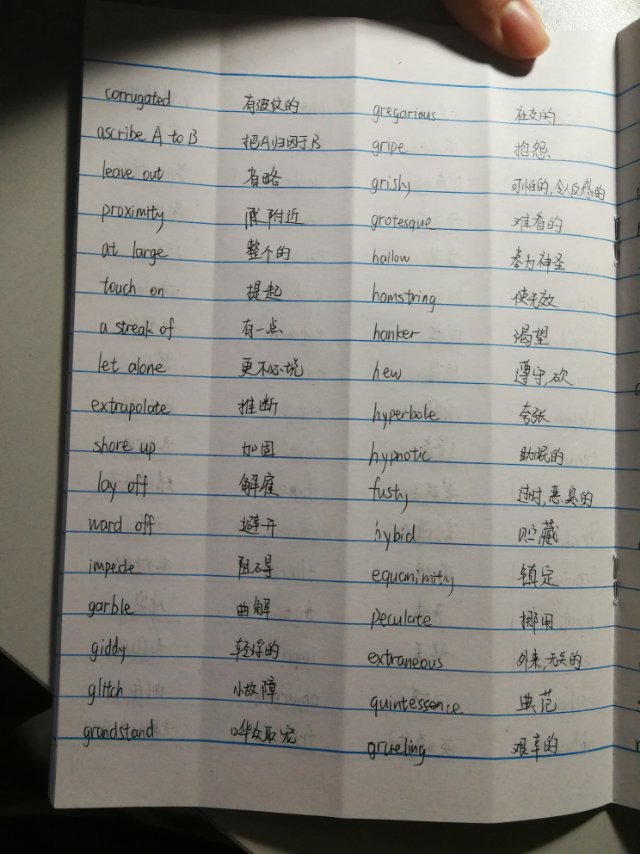 corrugated 有波纹的 gregarious 社交的
ascribe A to B 把A归因于B gripe 抱怨
leave out 省略 grisly 可怕的,令人反感的
proximity 附近 grotesque 难看的
at large 整个的 hallow 奉为神圣
touch on 提起 hamstring 使无效
a streak of 有一点 hanker 渴望
let alone 更不必说 hew 遵守,砍
extrapolate 推断 hyperbole 夸张
shore up 加固 hypnotic 助眠的
lay off 解雇 fusty 过时,恶臭的
ward off 避开 hybid 贮藏
impede 阻碍 equanimity 镇定
garble 曲解 peculate 挪用
giddy 轻浮的 extraneous 外来,无关的
glitch 小故障 quintessence 典范
grandstand 哗众取宠 grueling 艰辛的